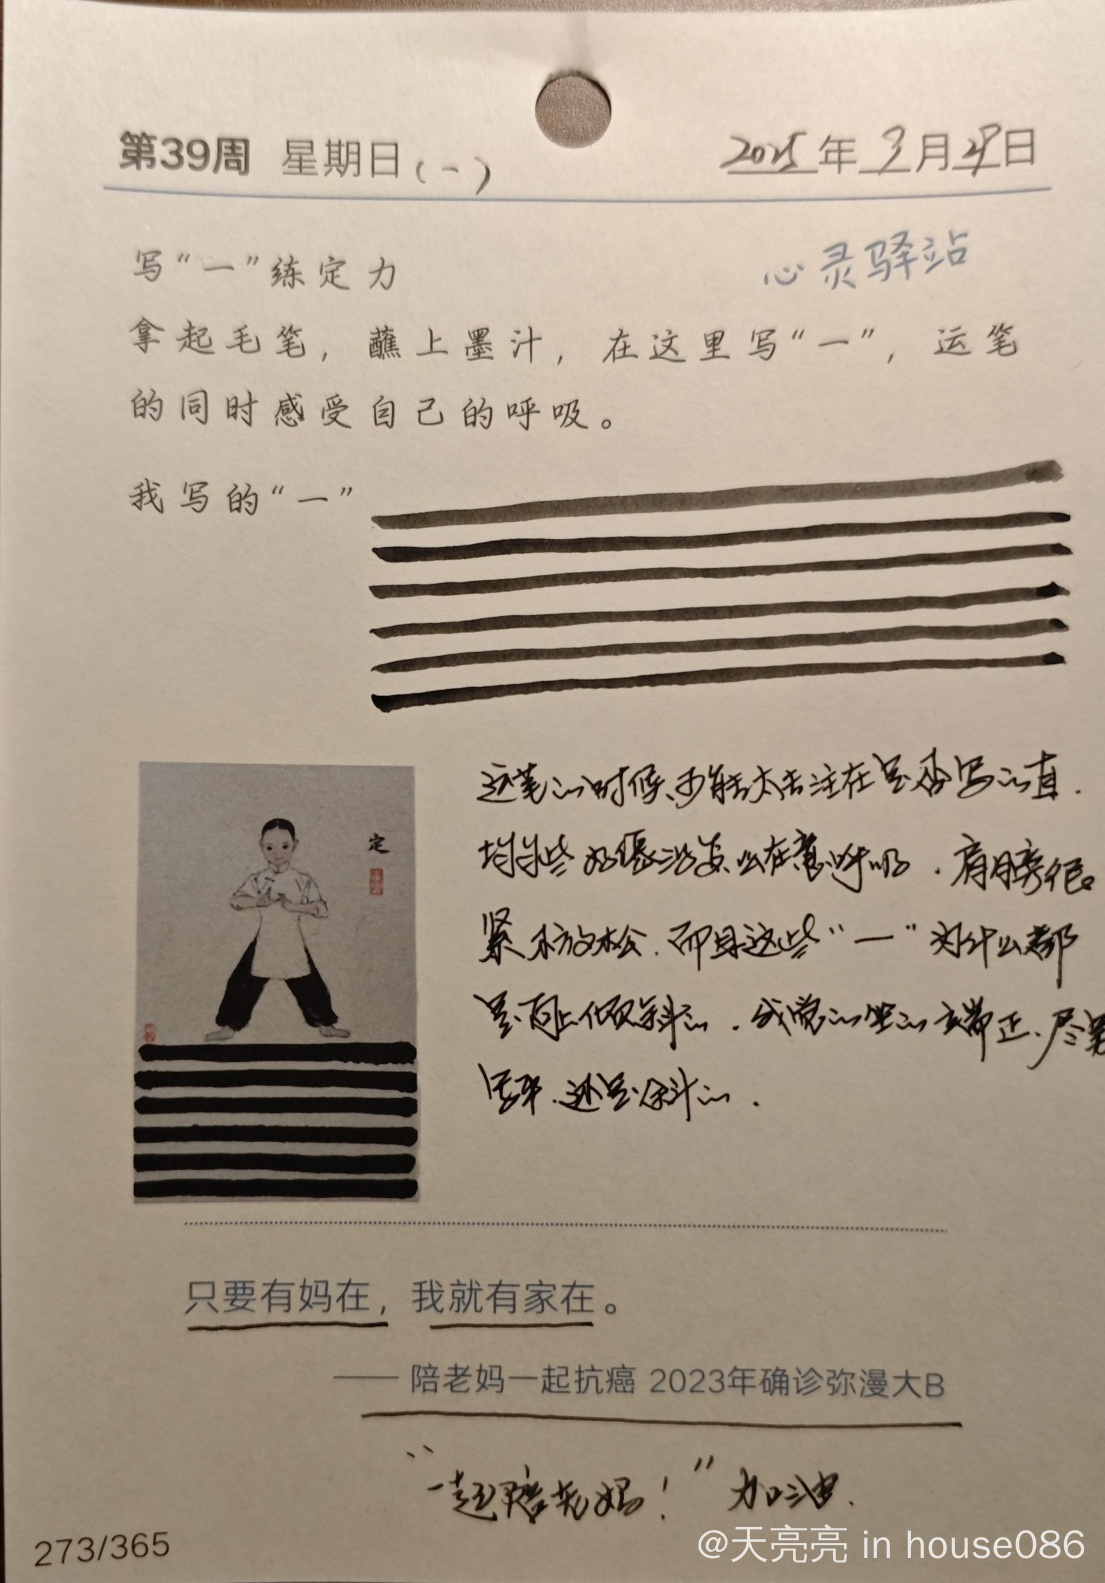 第39周 星期日(一) 2025年9月29日
心灵驿站
写“一”练定力
拿起毛笔，蘸上墨汁，在这里写“一”，运笔
的同时感受自己的呼吸。
我写的“一”
定
运笔的时候，可能太专注在是否写的直.
均匀些 好像没怎么在意呼吸. 肩膀很
紧 不放松. 而且这些“一”为什么都
是向上倾斜的. 我觉的坐的
还是斜的.
只要有妈在，我就有家在。
—— 陪老妈一起抗癌 2023年确诊弥漫大B
“一起陪老妈！”加油.
273/365
@天亮亮 in house086